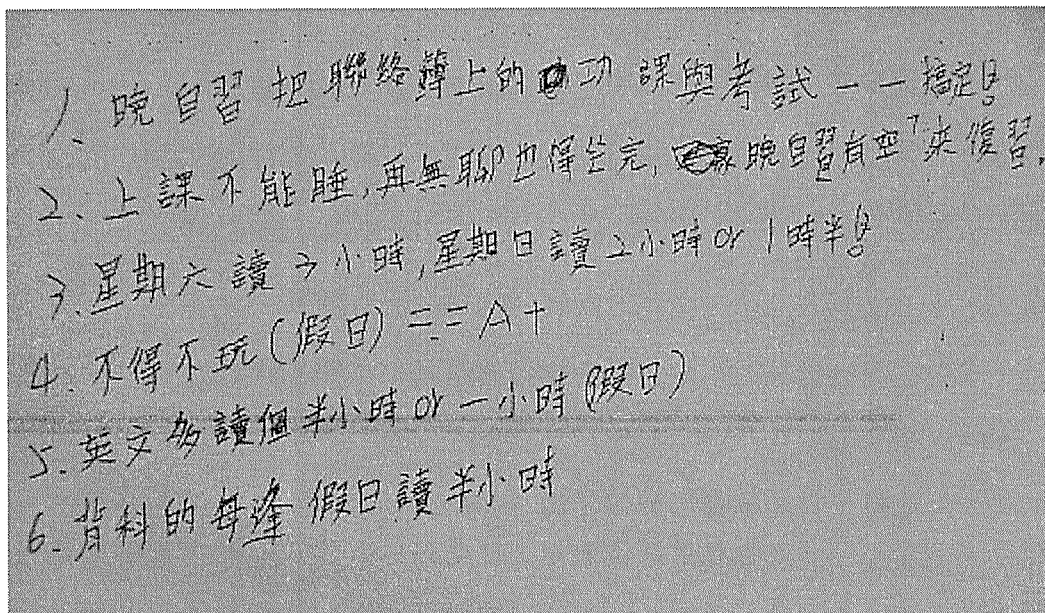 1、晚自習把聯絡簿上的功課與考試一一搞定!
2、上課不能睡,再無聊也得坐完,晚自習有空來復習.
3.星期六讀3小時,星期日讀2小時or1時半!
4.不得不玩(假日)==A+
5.英文多讀個半小時or一小時(假日)
6.背科的每逢假日讀半小時